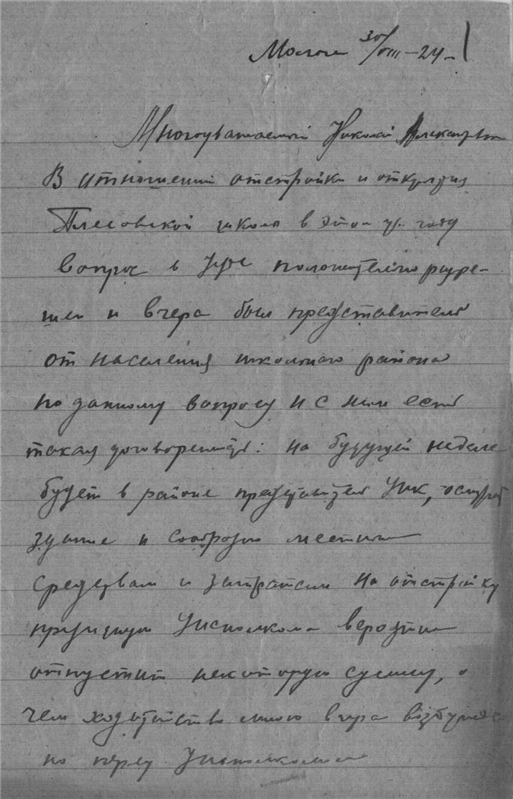 Молога 30/VIII-24
Многоуважаемый Николай Александрович
В отношении отстройки и открытия
Плесовской школы в этом у. году
вопрос в УИК положительно разре-
шен и вчера был представитель
от населения школьного района
по данному вопросу и с ним есть
такая договоренность: на будущей неделе
будет в районе представитель УИК, осмотрит
здание и сообразно местным
средствам и затратам на отстройку
президиум Уисполкома вероятно
отпустит некоторую сумму, о
чем ходатайство мною вчера возбужде-
но перед Уисполкомом